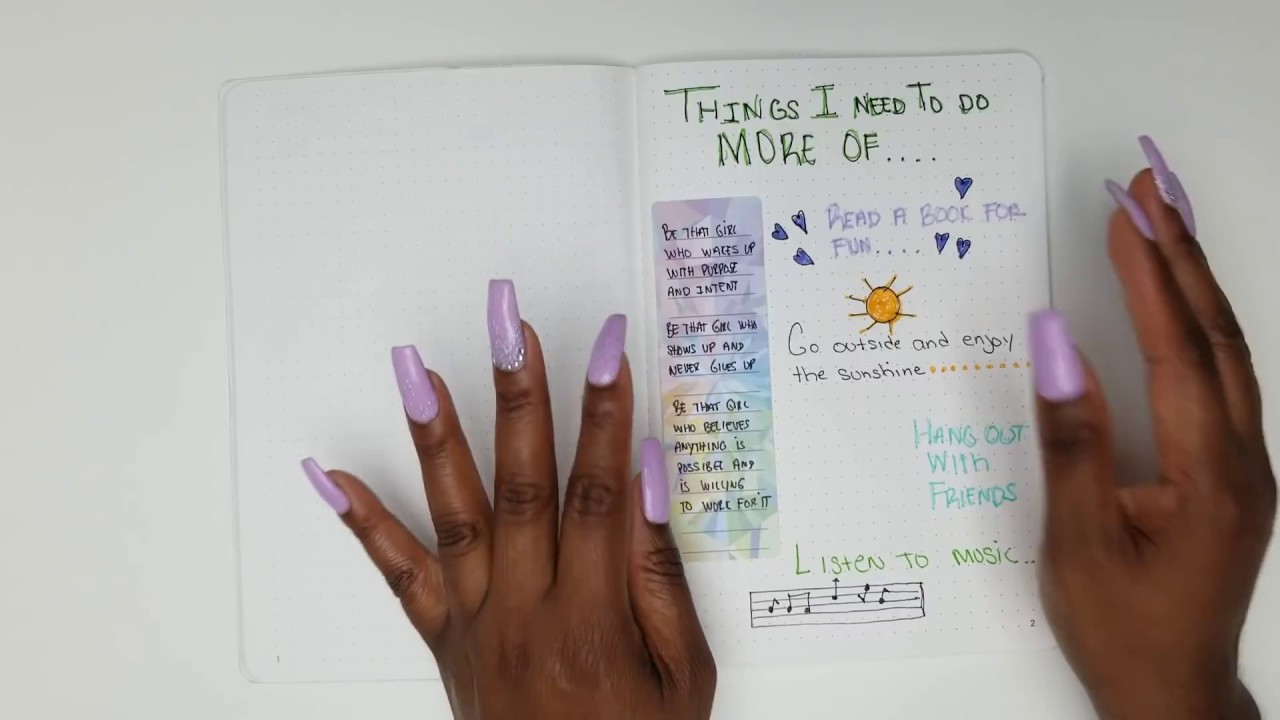 THINGS I NEED TO DO
MORE OF....
BE THAT GIRL
WHO WAKES UP
WITH PURPOSE
AND INTENT
BE THAT GIRL WHO
SHOWS UP AND
NEVER GIVES UP
BE THAT GIRL
WHO BELIEVES
ANYTHING is
POSSIBLE AND
is WILLING
TO WORK FOR IT
READ A BOOK FOR
FUN....
Go outside and enjoy
the sunshine
HANG OUT
With
FRIENDS
Listen To music..
1
2